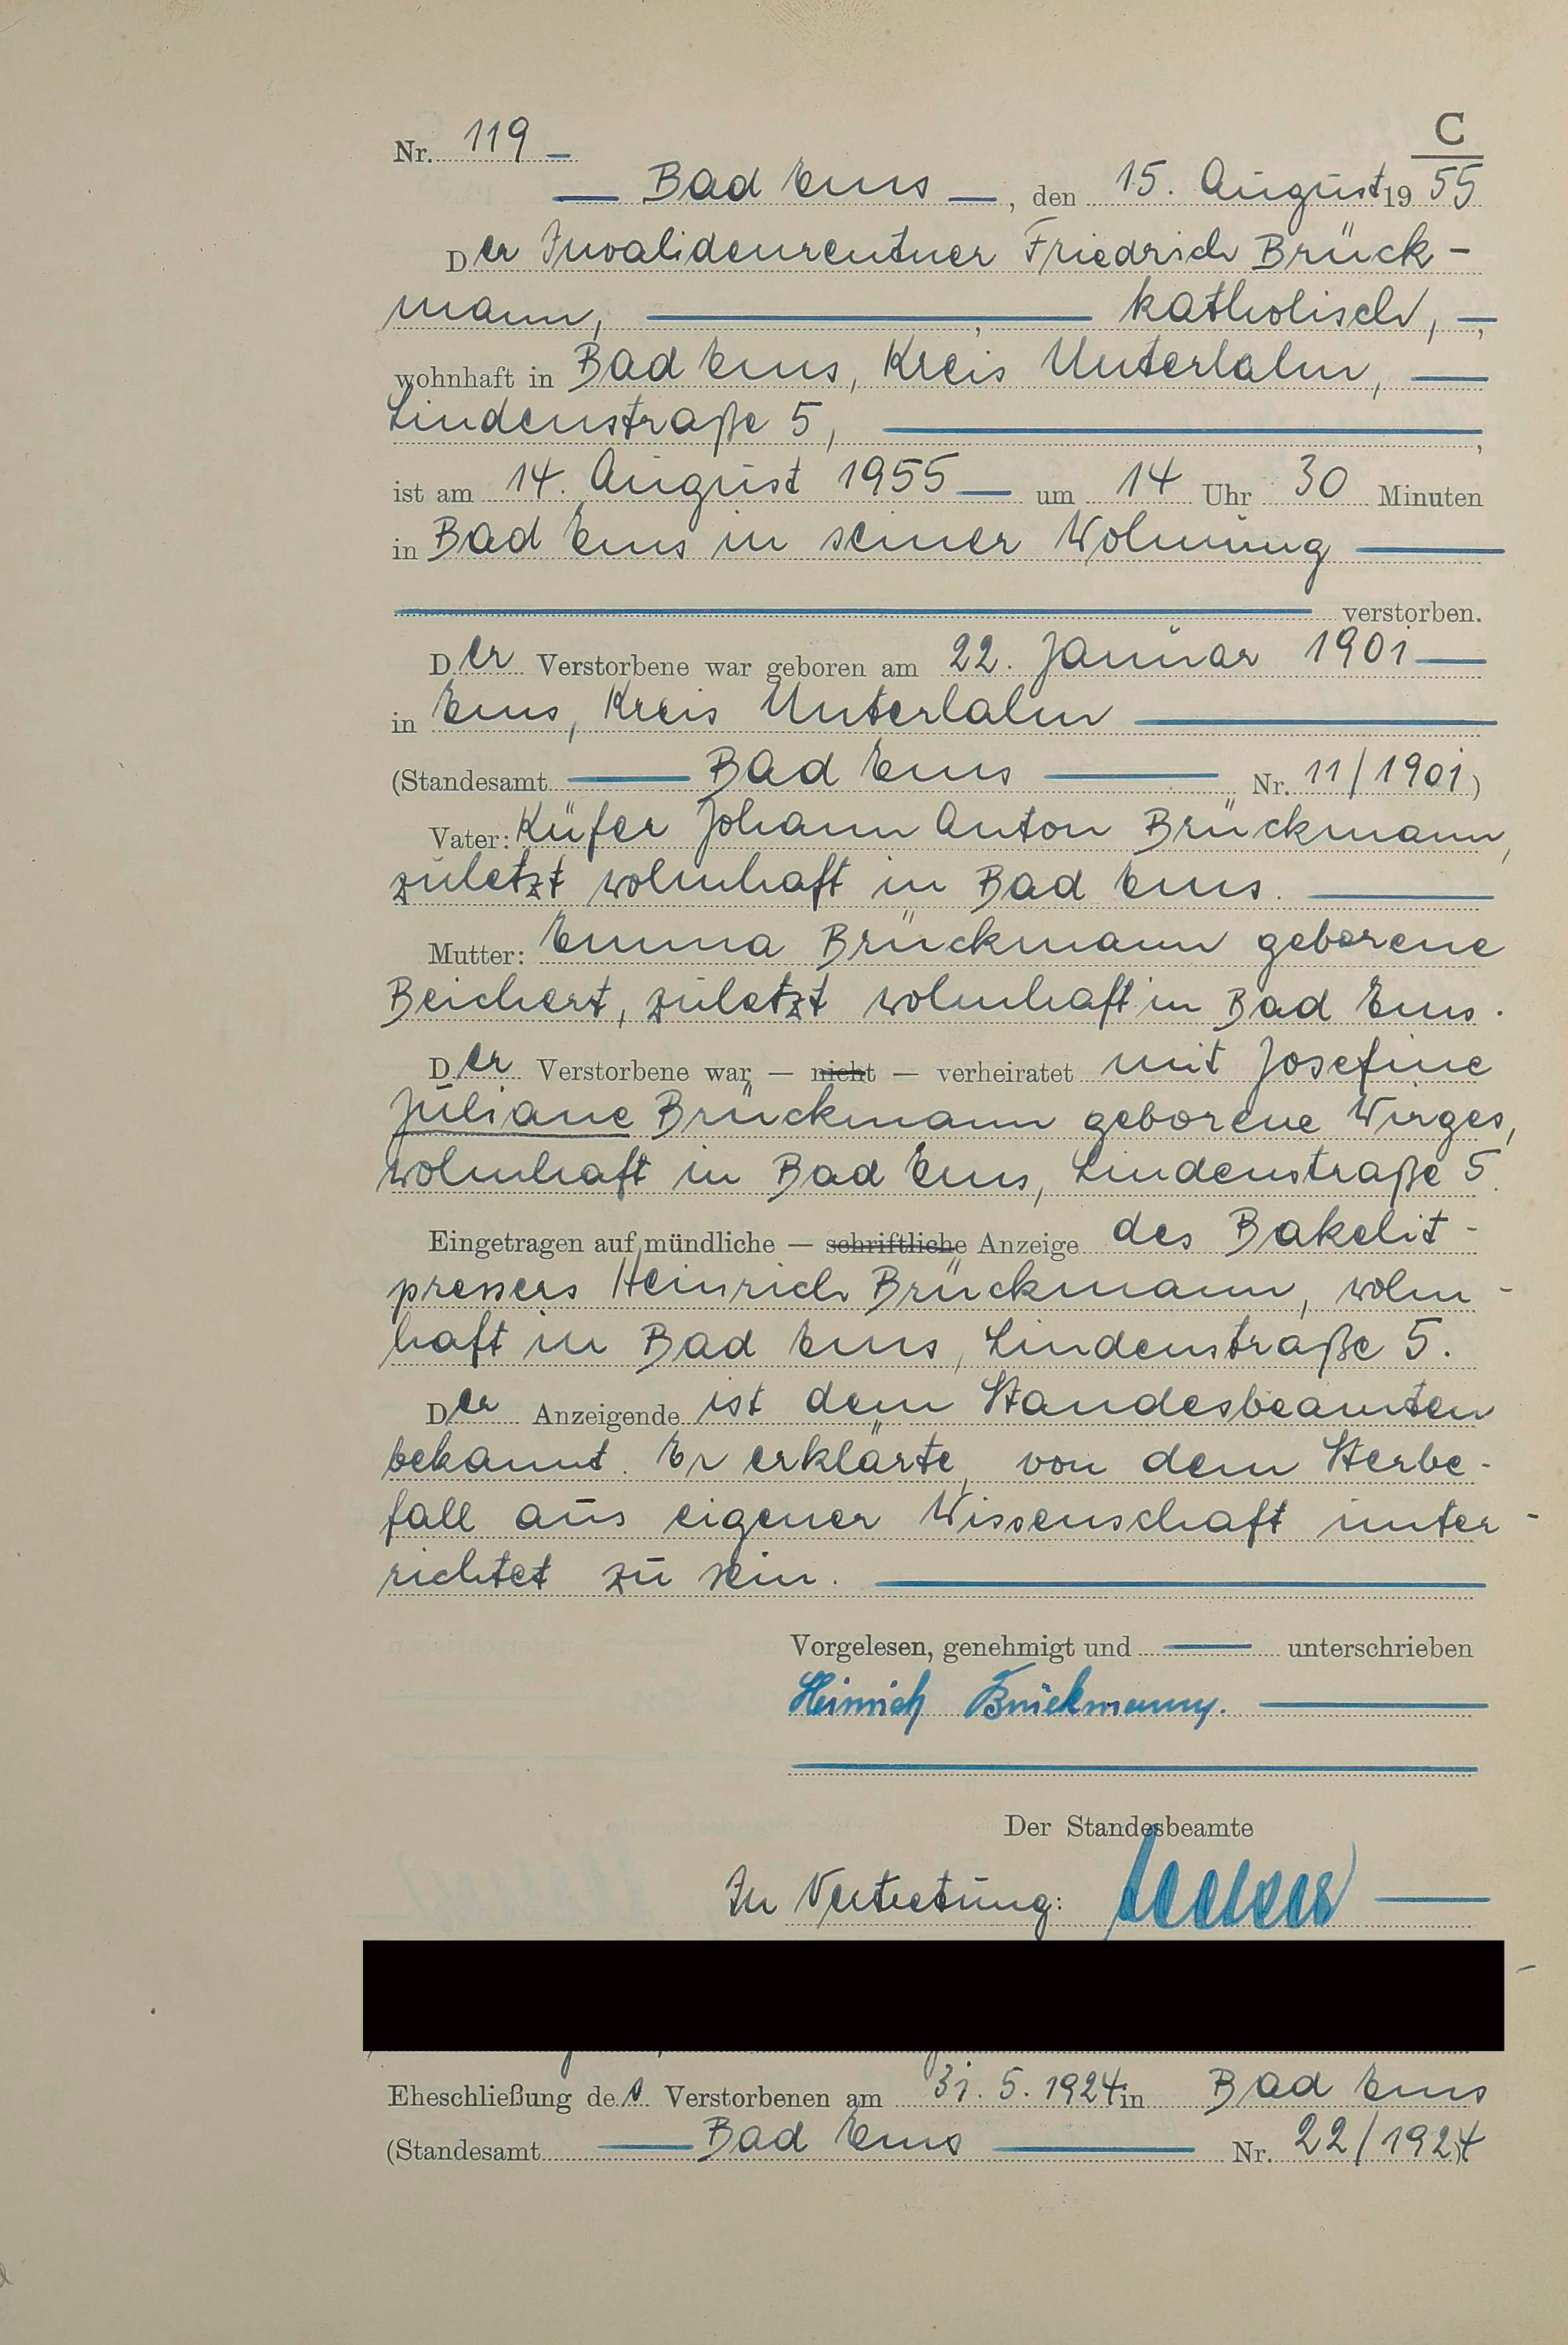 C
Nr. 119 –
— Bad Ems —, den 15. August 19 55
Der Invalidenrentner Friedrich Brück-
mann, —, katholisch, —,
wohnhaft in Bad Ems, Kreis Unterlahn, —
Lindenstraße 5, —,
ist am 14. August 1955 — um 14 Uhr 30 Minuten
in Bad Ems in seiner Wohnung —
— verstorben.
Der Verstorbene war geboren am 22. Januar 1901 —
in Ems, Kreis Unterlahn —
(Standesamt — Bad Ems — Nr. 11/1901)
Vater: Küfer Johann Anton Brückmann,
zuletzt wohnhaft in Bad Ems. —
Mutter: Emma Brückmann geborene
Beichert, zuletzt wohnhaft in Bad Ems.
Der Verstorbene war — nicht — verheiratet mit Josefine
Juliane Brückmann geborene Wirges,
wohnhaft in Bad Ems, Lindenstraße 5.
Eingetragen auf mündliche — schriftliche Anzeige des Bakelit-
pressers Heinrich Brückmann, wohn-
haft in Bad Ems, Lindenstraße 5.
Der Anzeigende ist dem Standesbeamten
bekannt. Er erklärte, von dem Sterbe-
fall aus eigener Wissenschaft unter-
richtet zu sein. —
Vorgelesen, genehmigt und — unterschrieben
Heinrich Brückmann. —
Der Standesbeamte
In Vertretung:
Eheschließung des Verstorbenen am 31. 5. 1924 in Bad Ems
(Standesamt — Bad Ems — Nr. 22/1924)